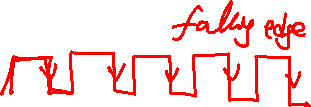 falling edge